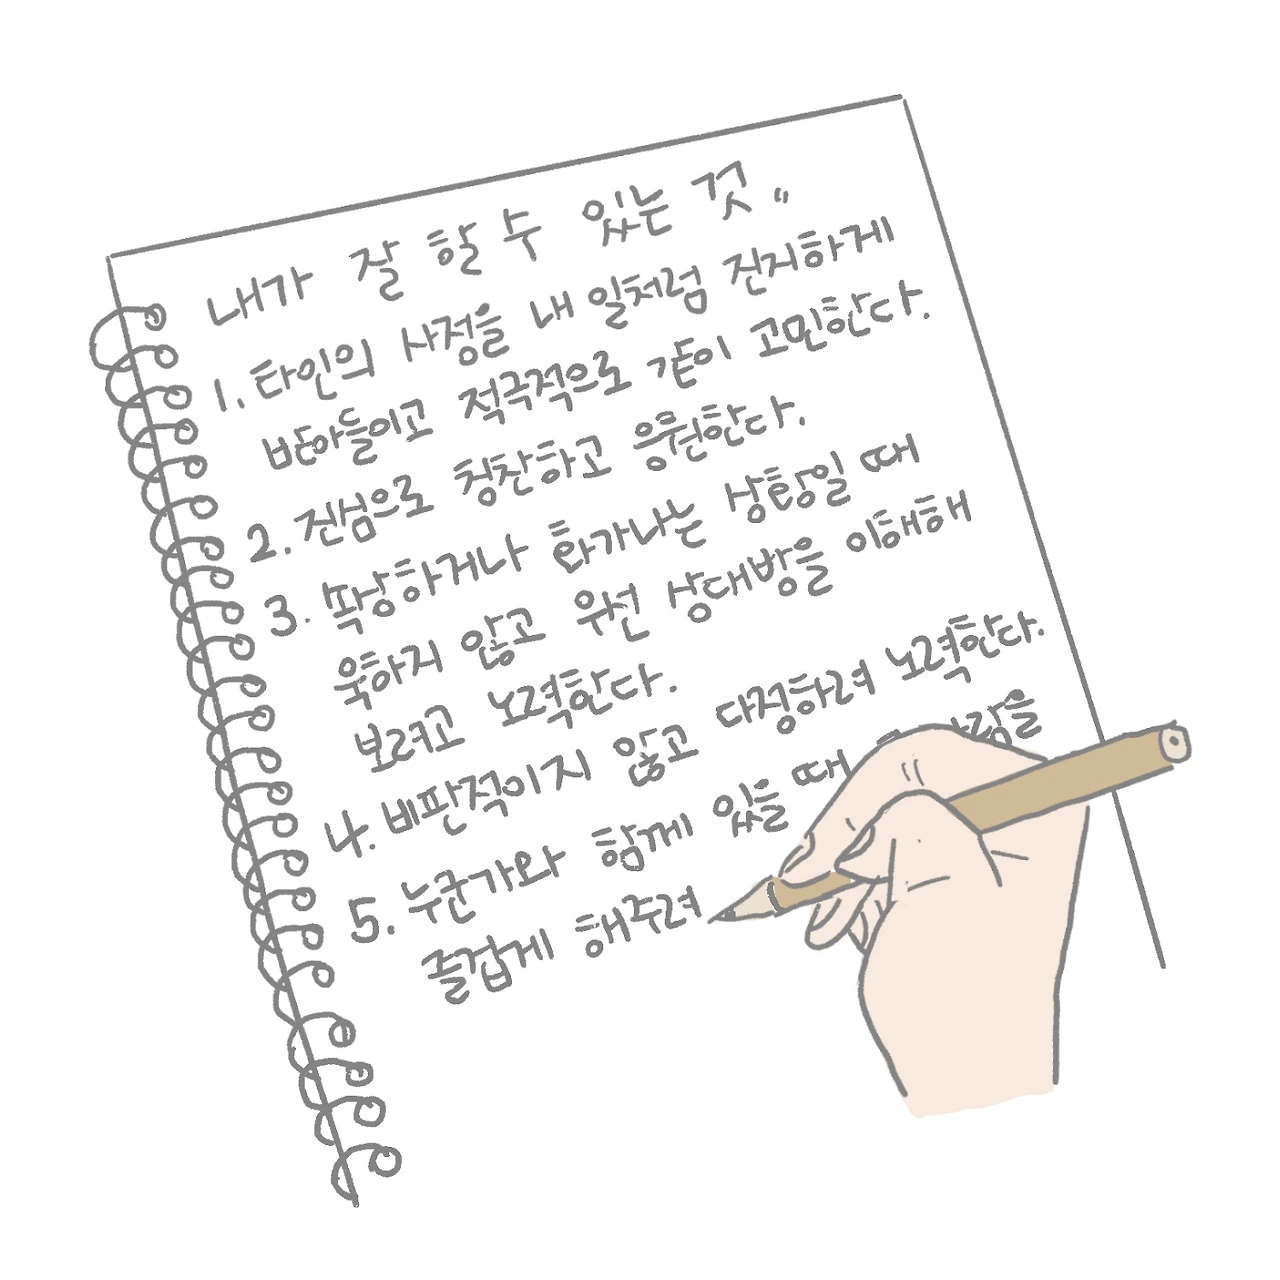 내가 잘 할 수 있는 것"
1. 타인의 사정을 내 일처럼 진지하게
받아들이고 적극적으로 같이 고민한다.
2. 진심으로 칭찬하고 응원한다.
3. 속상하거나 화가나는 상황일 때
욱하지 않고 우선 상대방을 이해해
보려고 노력한다.
4. 비판적이지 않고 다정하려 노력한다.
5. 누군가와 함께 있을 때
즐겁게 해주려